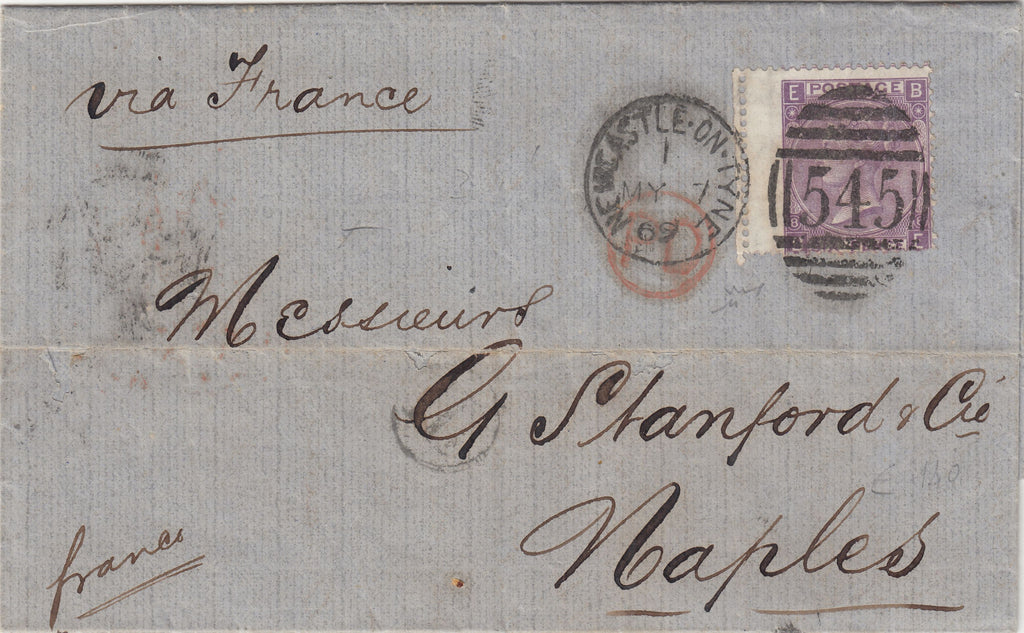 via France
NEWCASTLE·ON·TYNE
1
MY 7
69
PD
E POSTAGE B
545
B E
Messieurs
G Stanford & Cie
Naples
franco